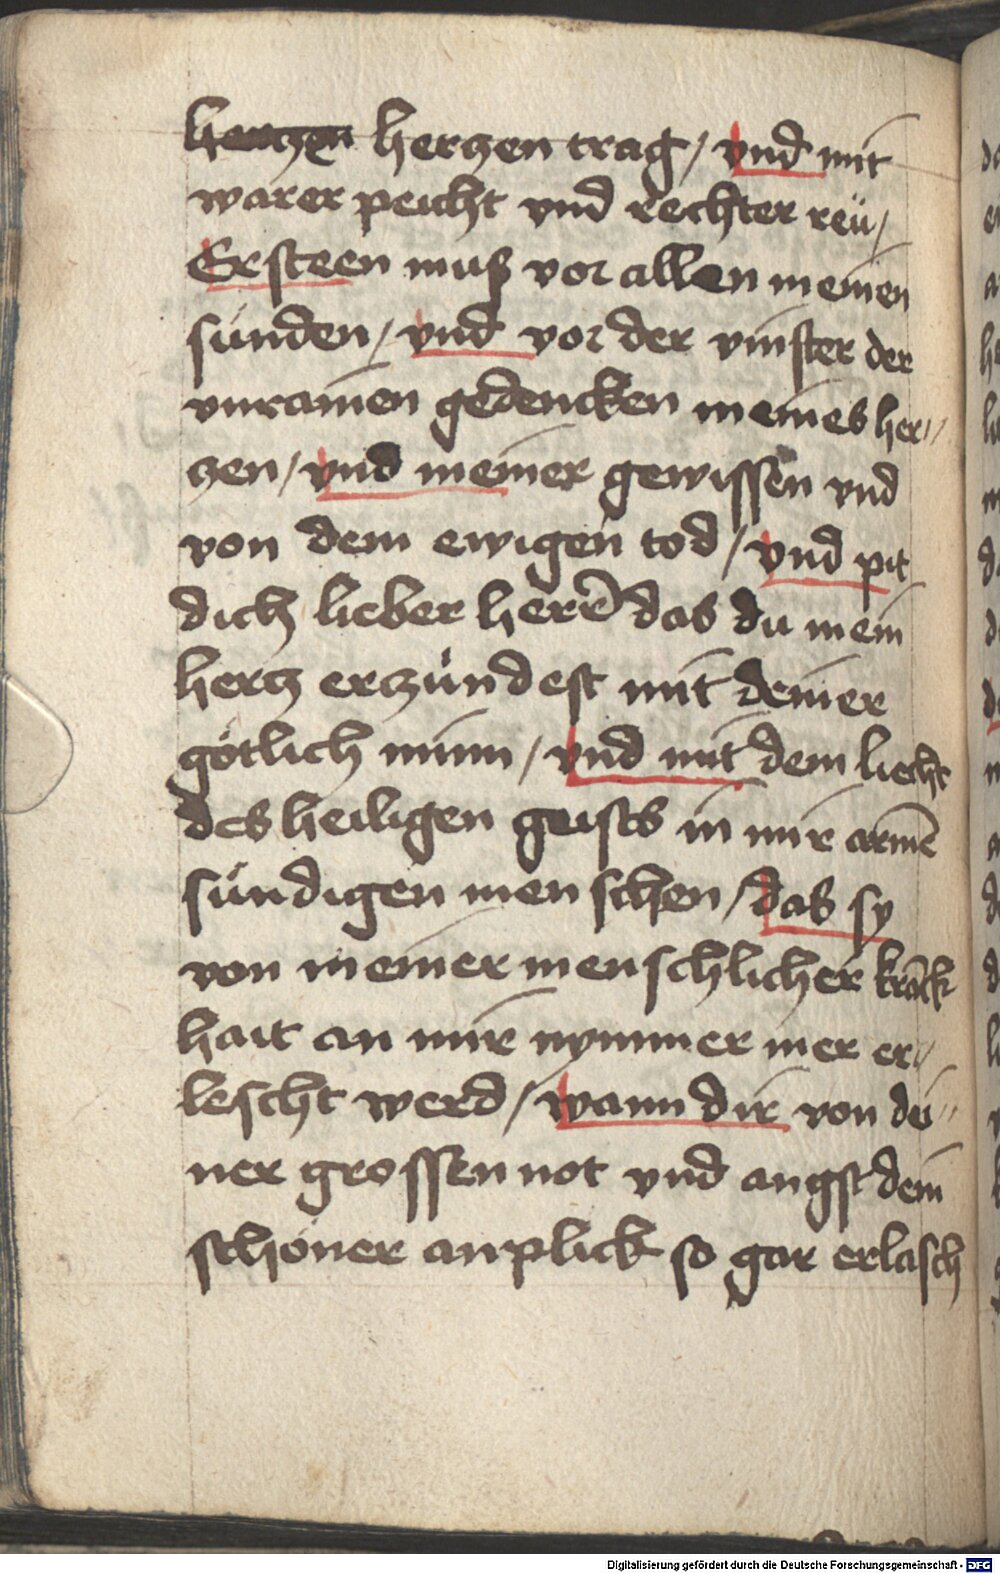 herczen herczen trag / vnd mit
warer peicht vnd rechter reü /
Ersteen muß vor allen meinen
sünden / vnd vor der vinster der
vnrainen gedencken meines her //
czen / vnd meiner gewissen vnd
von dem ewigen tod / vnd pit
dich lieber herrē das du mein
hercz erczündest mit deiner
götlich minn / vnd mit dem liecht
des heiligen geists in mir armē
sündigen menschen / das sy
von meiner menschlicher krāck
hait an mir nymmer mer er //
lescht werd / wann dir von dei //
ner grossen not vnd angst dein
schöner anplick so gar erlasch
Digitalisierung gefördert durch die Deutsche Forschungsgemeinschaft - DFG